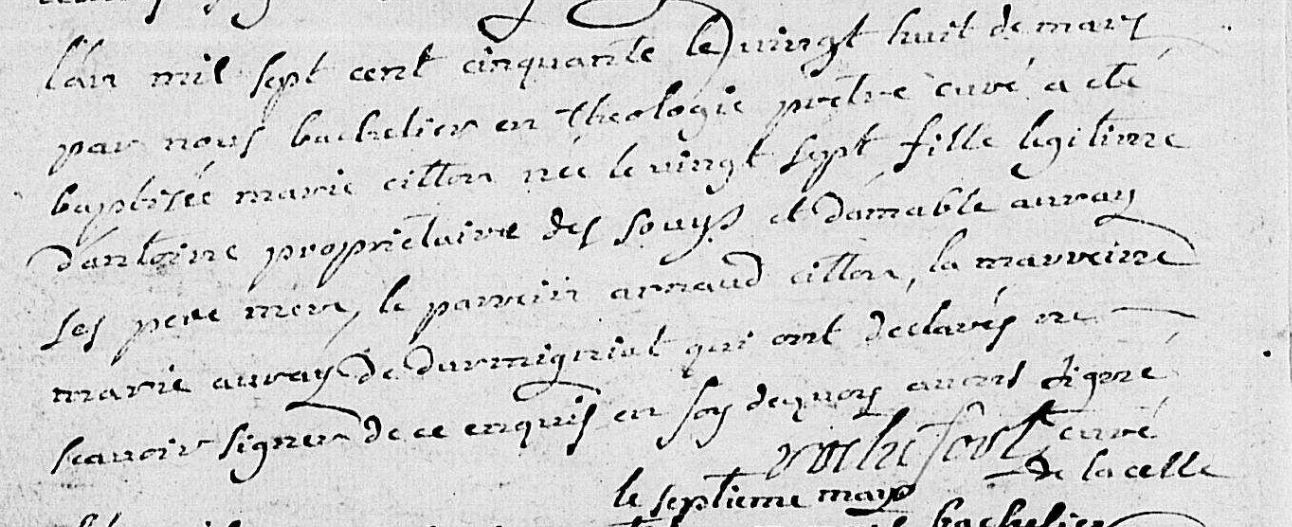 lan mil sept cent cinquante le vingt huit de mars
par nous bachelier en theologie prêtre curé a eté
baptisée marie citton née le vingt sept fille legitime
dantoine proprietaire des souys et damable auray
ses pere mere, le parrein arnaud citton, la marreine
marie auray de durmignat qui ont declarés ne
scavoir signer de ce enquis en foy dequoy avons signé
rochefort curé
de la celle
le septieme may
bachelier